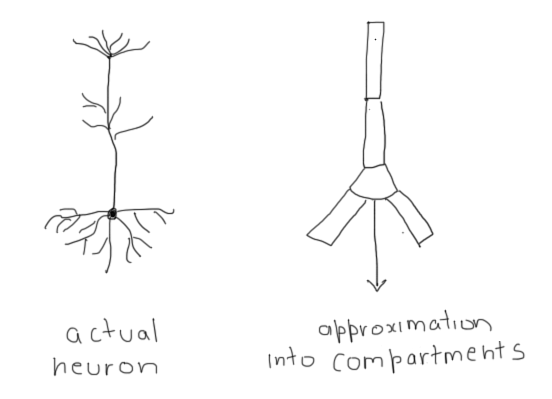 actual
neuron
approximation
into compartments